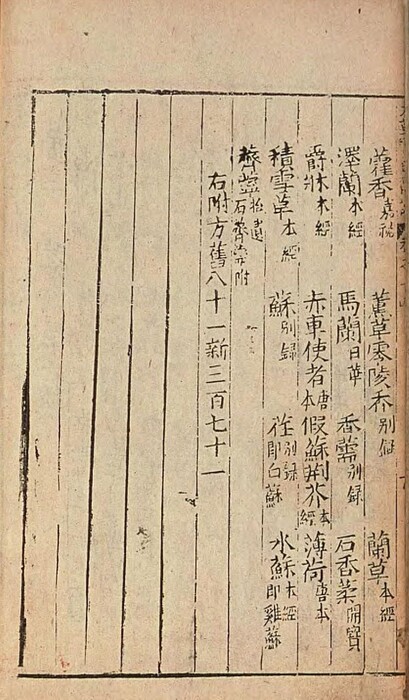 藿香嘉祐 薰草零陵香別録 蘭草本經
澤蘭本經 馬蘭日華 香薷別録 石香葇開寶
爵牀本經 赤車使者唐本 假蘇荊芥本經 薄荷唐本
積雪草本經 蘇別録 荏別録即白蘇 水蘇本經即雞蘇
薺薴拾遺石薺薴附
右附方舊八十一新三百七十一